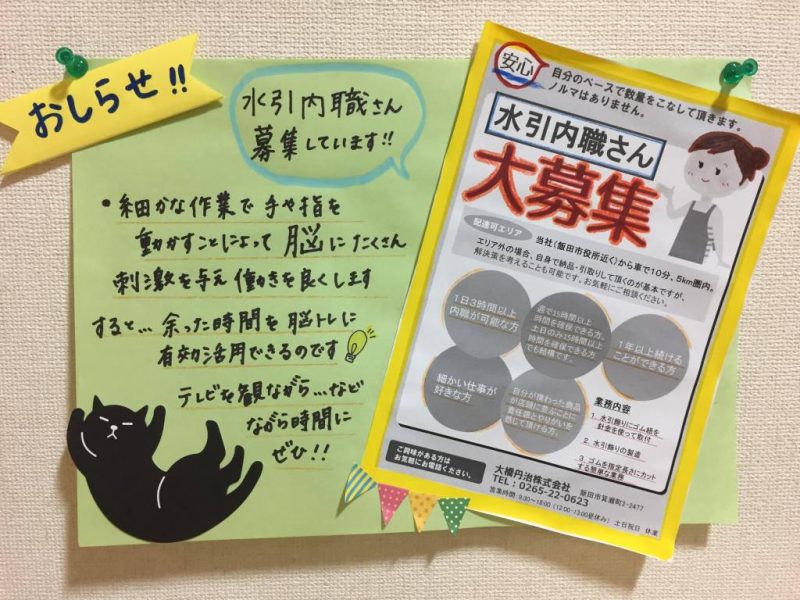 おしらせ!!
水引内職さん
募集しています!!
• 細かな作業で手や指を
動かすことによって脳にたくさん
刺激を与え働きを良くします
すると…余った時間を脳トレに
有効活用できるのです
テレビを観ながら…など
ながら時間に
ぜひ!!
安心
自分のペースで数量をこなして頂きます。
ノルマはありません。
水引内職さん
大募集
配達可エリア
当社(飯田市役所近く)から車で10分、5km圏内。
エリア外の場合、自身で納品・引取りして頂くのが基本ですが、
解決策を考えることも可能です。お気軽にご相談ください。
1日3時間以上
内職が可能な方
週で15時間以上
時間を確保できる方。
土日のみ15時間以上
時間を確保できる方
でも結構です。
1年以上続ける
ことができる方
細かい仕事が
好きな方
自分が携わった商品
が店頭に並ぶことに
責任感とやりがいを
感じて頂ける方。
業務内容
1. 水引飾りにゴム紐を
針金を使って取付
2. 水引飾りの製造
3. ゴムを指定長さにカット
する簡単な業務
ご興味がある方は
お気軽にお電話ください。
大橋丹治株式会社
飯田市箕瀬町2-2477
TEL:0265-22-0623
営業時間 9:30~18:00 (12:00-13:00昼休み) 土日祝日 休業